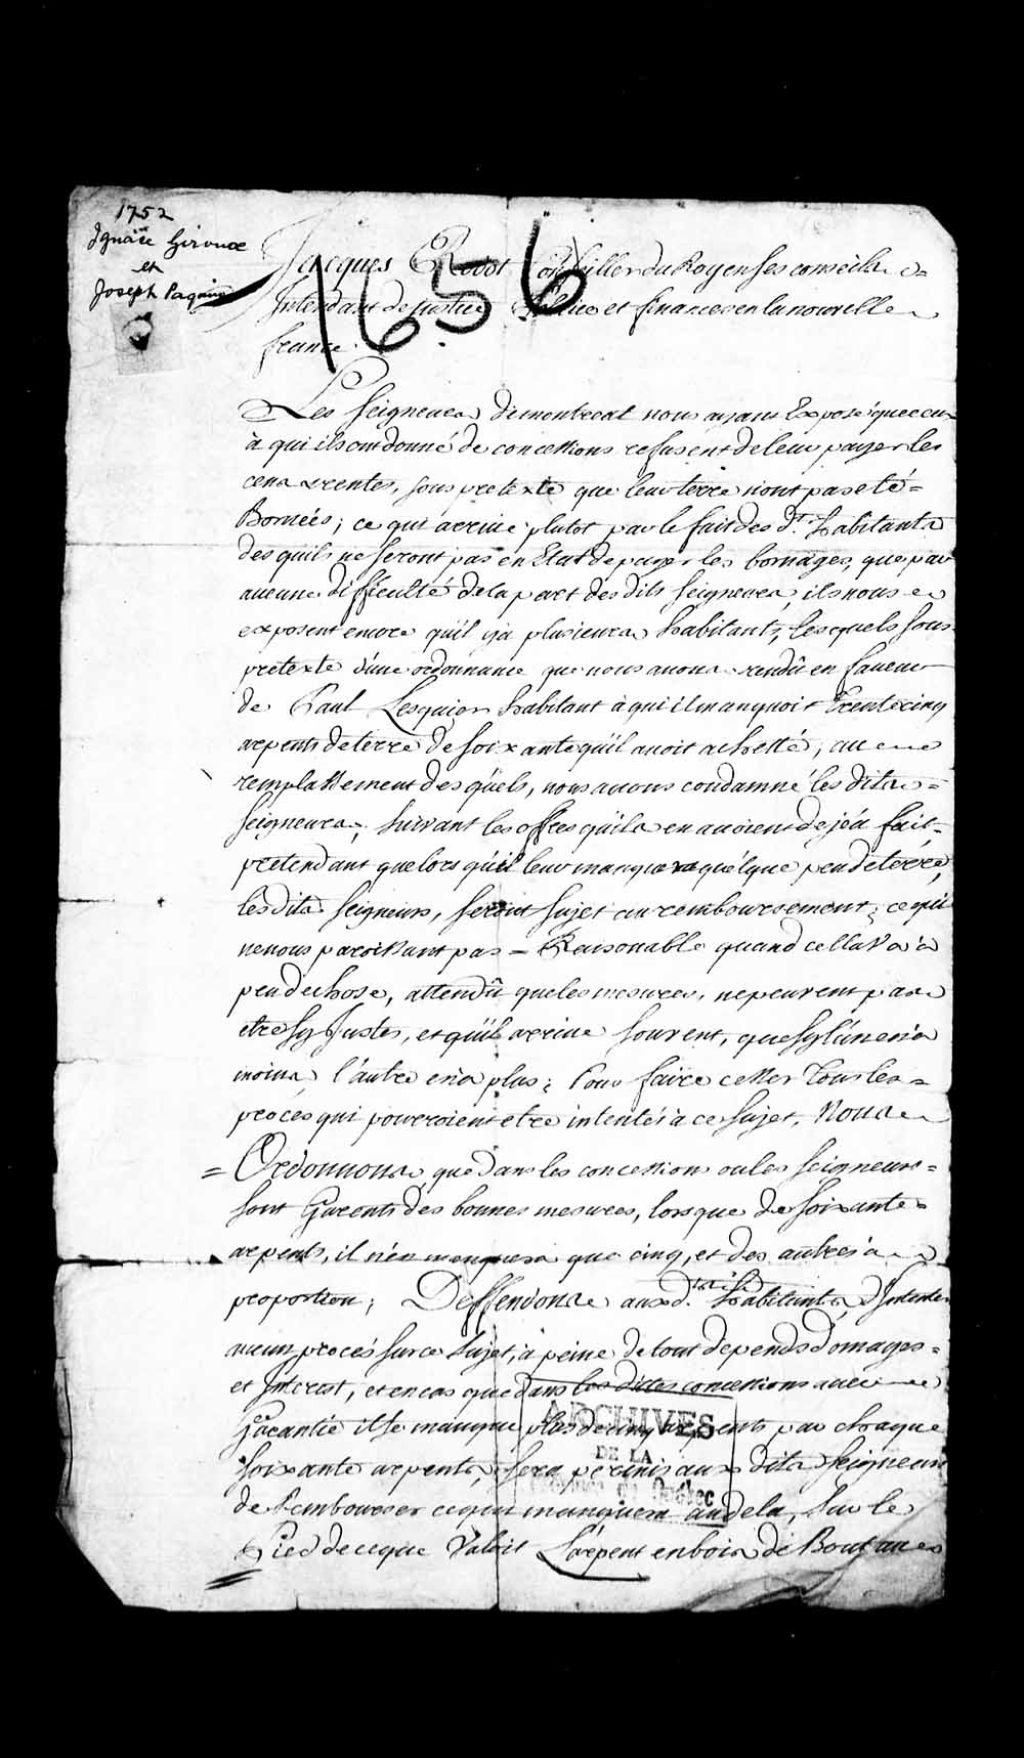 1752
Ignace Giroux
et
Joseph Paquin
1656
Jacques Raudot Conseiller du Roy en ses conseils
Intendant de Justice Police et finances en la nouvelle
france.
Les Seigneurs de montreal nous ayant Exposé que ceux
à qui ils ont donné de concessions refusent de leur payer les
cens & rentes, sous pretexte que leur terre n'ont pas eté =
Bornées; ce qui arrive plutot par le fait des d.ts habitants
des quils ne seront pas en Etat de payer les bornages, que par
aucune difficulté de la part des dits Seigneurs, ils nous
exposent encore qu'il y a plusieurs habitants, lesquels sous
pretexte d'une ordonnance que nous avons rendû en faveur
de Paul Lesquier habitant à qui il manquoit trente cinq
arpents de terre de soixante qu'il avoit achetté, au
remplassement des quels, nous avons condamné les dits =
Seigneurs, suivant les offres qu'ils en avoient deja fait,
pretendant que lors qu'il leur manquera quelque peu de terre,
les dits Seigneurs, seront sujet au remboursement; ce qui
ne nous paroissant pas = Raisonable quand cella va à
peu de chose, attendû que les mesures, ne peuvent pas
etre sy Justes, et qu'il arrive souvent, que sy l'une n'a
moins, l'autre en a plus; Pour faire cesser tous les =
procès qui pourroient etre intentés à ce sujet, Nous
= Ordonnons, que dans les concessions ou les Seigneurs =
sont Garents des bonnes mesures, lorsque de soixante =
arpents, il n'en manquera que cinq, et des autres à
proportion; Deffendons aux d. habitants, d'Intenter
aucun procès sur ce sujet, à peine de tout depends domages =
et Interest, et en cas que dans les dites concessions avec
Garantie il se manque plus de cinq arpents par chaque
soixante arpents, sera permis aux dits Seigneurs
de Rembourser ce qui manquera au dela, sur le
Pied de ce que Valoit L'arpent en bois de Bout
ARCHIVES
DE LA
Province de Québec